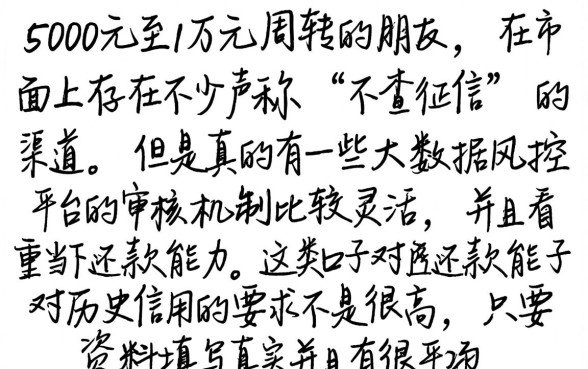 5000元至1万元周转的朋友，在市
面上存在不少声称“不查征信”的
渠道。但是真的有一些大数据风控
平台的审核机制比较灵活，并且看
重当下还款能力。这类口子对还款能子
对历史信用的要求不是很高，只要
资料填写真实并且有很平